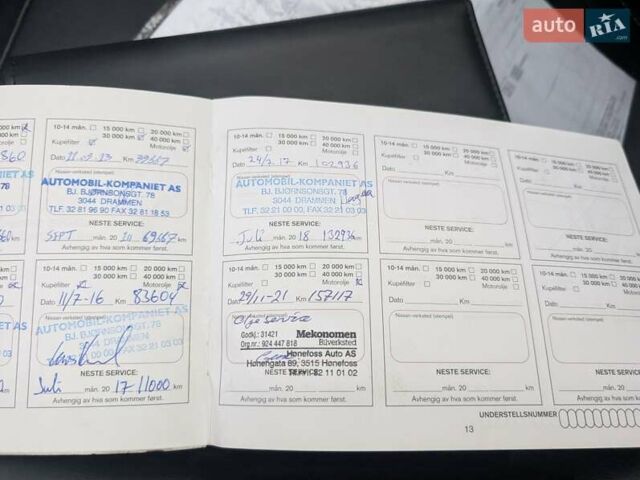 auto RIA.com
10-14 mån. 15 000 km 20 000 km
30 000 km 40 000 km
Kupéfilter Motorolje
Dato 11.09.13 Km 39667
AUTOMOBIL-KOMPANIET AS
BJ. BJØRNSONSGT. 78
3044 DRAMMEN
TLF. 32 81 96 90 FAX 32 81 18 53
NESTE SERVICE:
SEPT mån. 20 69667 km
Avhengig av hva som kommer først.
10-14 mån. 15 000 km 20 000 km
30 000 km 40 000 km
Kupéfilter Motorolje
Dato 11/7-16 Km 83604
AUTOMOBIL-KOMPANIET AS
BJ. BJØRNSONSGT. 78
3044 DRAMMEN
NESTE SERVICE:
Juli mån. 20 17 11000 km
Avhengig av hva som kommer først.
10-14 mån. 15 000 km 20 000 km
30 000 km 40 000 km
Kupéfilter Motorolje
Dato 24/7.17 Km 102936
Nissan-verksted (stempel)
AUTOMOBIL-KOMPANIET AS
BJ. BJØRNSONSGT. 78
3044 DRAMMEN
TLF. 32 21 00 00, FAX 32 21 03 03
NESTE SERVICE:
Juli mån. 20 18 132936 km
Avhengig av hva som kommer først.
10-14 mån. 15 000 km 20 000 km
30 000 km 40 000 km
Kupéfilter Motorolje
Dato 29/11-21 Km 157117
Olje service
Godkj.: 31421 Mekonomen
Org.nr.: 924 447 818 Bilverksted
Hønefoss Auto AS
Hønengata 89, 3515 Hønefoss
NESTE SERVICE:
mån. 20 km
Avhengig av hva som kommer først.
10-14 mån. 15 000 km 20 000 km
30 000 km 40 000 km
Kupéfilter Motorolje
Dato Km
Nissan-verksted (stempel)
NESTE SERVICE:
mån. 20 km
Avhengig av hva som kommer først.
10-14 mån. 15 000 km 20 000 km
30 000 km 40 000 km
Kupéfilter Motorolje
Dato Km
Nissan-verksted (stempel)
NESTE SERVICE:
mån. 20 km
Avhengig av hva som kommer først.
10-14 mån. 15 000 km 20 000 km
30 000 km 40 000 km
Kupéfilter Motorolje
Dato Km
Nissan-verksted (stempel)
NESTE SERVICE:
mån. 20
Avhengig av hva som kommer først.
10-14 mån. 15 000 km
30 000 km
Kupéfilter
Dato Km
Nissan-verksted (stempel)
NESTE SERVICE:
mån. 20
Avhengig av hva som kommer først.
UNDERSTELLSNUMMER
13